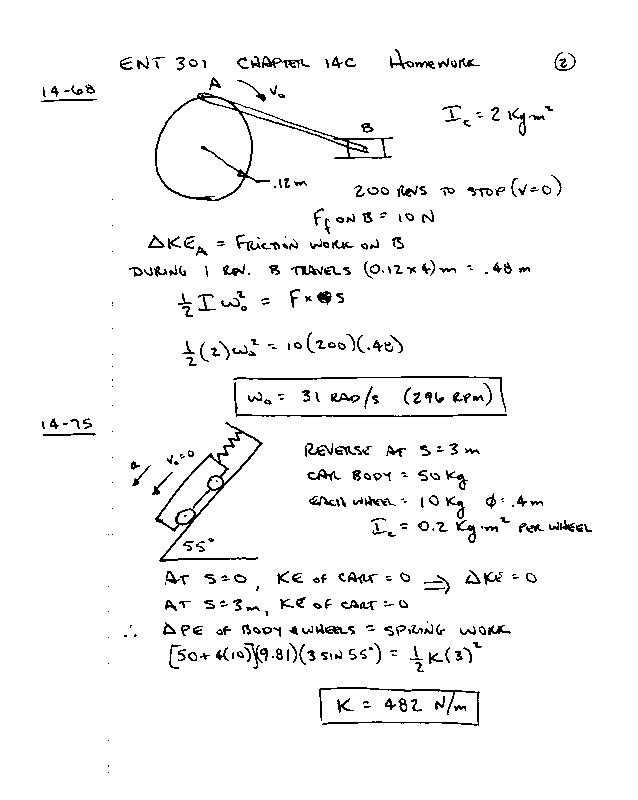 ENT 301 CHAPTER 14C HOMEWORK (2)
14-68
A
V₀
B
I_c = 2 Kg m²
.12m
200 REVS TO STOP (V=0)
F_f ON B = 10 N
ΔKE_A = FRICTION WORK ON B
DURING 1 REV. B TRAVELS (0.12 x 4)m = .48 m
½ I ω₀² = F x S
½ (2) ω₀² = 10(200)(.48)
ω₀ = 31 RAD/S (296 RPM)
14-75
V₀=0
55°
REVERSE AT S=3m
CAR BODY = 50 Kg
EACH WHEEL = 10 Kg φ = .4m
I_c = 0.2 Kg·m² PER WHEEL
AT S=0, KE OF CART = 0 ⇒ ΔKE = 0
AT S=3m, KE OF CART = 0
∴ ΔPE OF BODY & WHEELS = SPRING WORK
[50+4(10)](9.81)(3 SIN 55°) = ½ K(3)²
K = 482 N/m